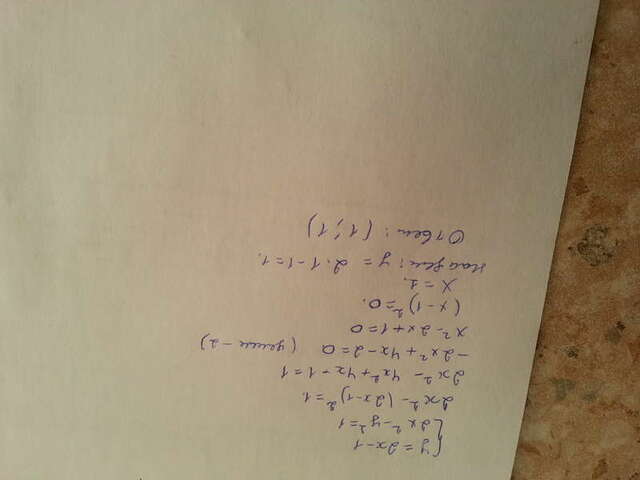 { y = 2x - 1
2x² - y² = 1
2x² - (2x-1)² = 1
2x² - 4x² + 4x - 1 = 1
-2x² + 4x - 2 = 0 (делим -2)
x² - 2x + 1 = 0
(x - 1)² = 0.
x = 1.
найдем: y = 2·1 - 1 = 1.
Ответ: (1; 1)